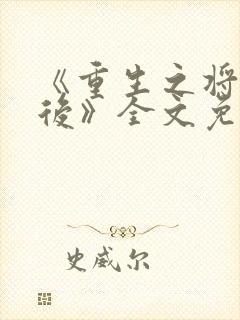 《重生之将
後》全文免
史威尔